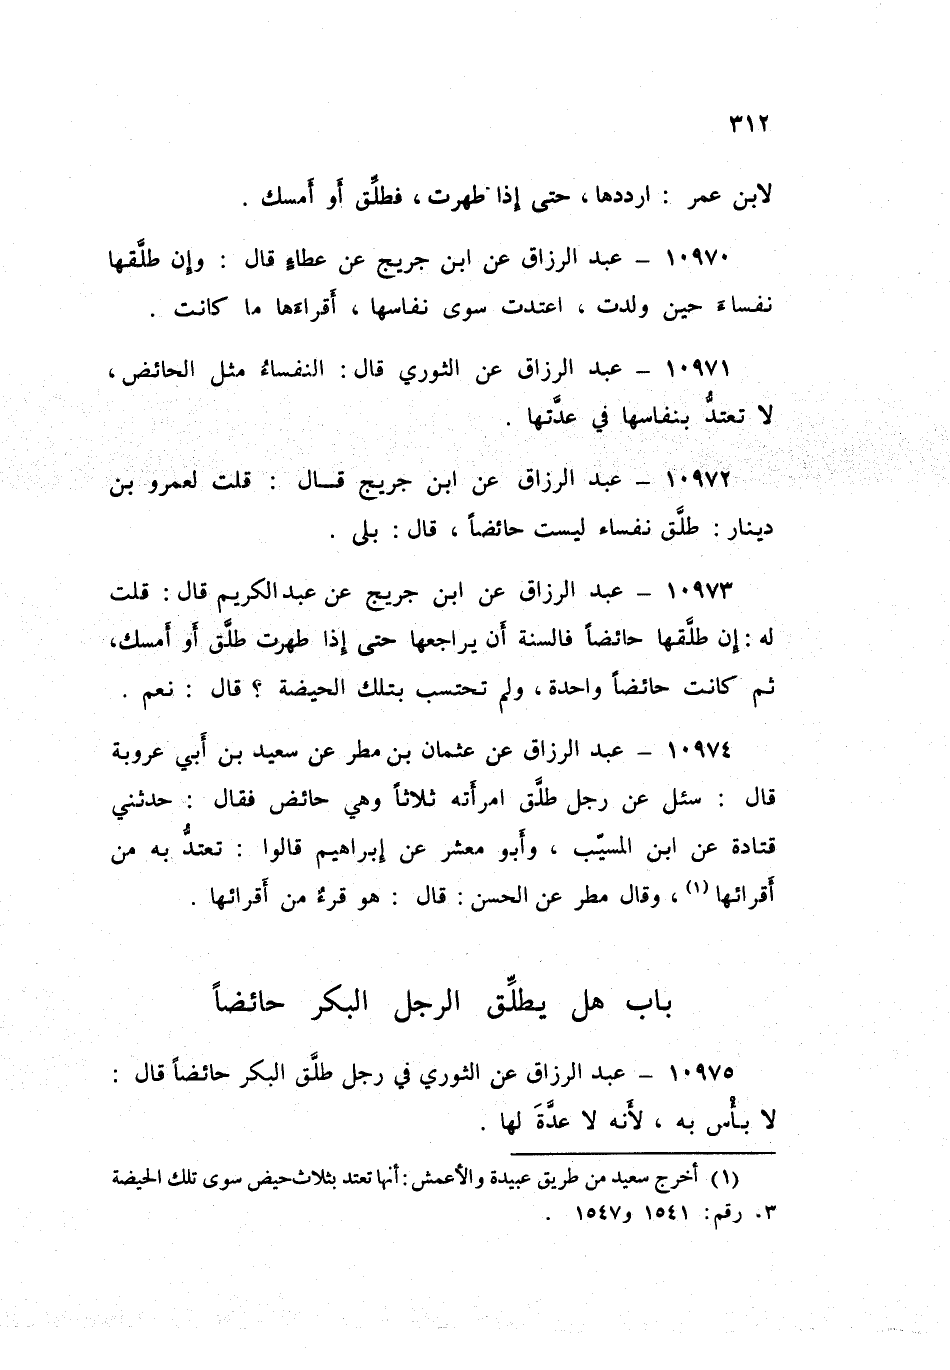 ٣١٢
لابن عمر : ارددها ، حتى إذا طهرت ، فطلِّق أو أمسك .
١٠٩٧٠ – عبد الرزاق عن ابن جريج عن عطاءٍ قال : وإن طلَّقها
نفساءَ حين ولدت ، اعتدت سوى نفاسها ، أقراءَها ما كانت .
١٠٩٧١ – عبد الرزاق عن الثوري قال : النفساءُ مثل الحائض ،
لا تعتدُّ بنفاسها في عدَّتها .
١٠٩٧٢ – عبد الرزاق عن ابن جريج قـــال : قلت لعمرو بن
دينار : طلَّق نفساء ليست حائضاً ، قال : بلى .
١٠٩٧٣ – عبد الرزاق عن ابن جريج عن عبد الكريم قال : قلت
له : إن طلَّقها حائضاً فالسنة أن يراجعها حتى إذا طهرت طلَّق أو أمسك،
ثم كانت حائضاً واحدة ، ولم تحتسب بتلك الحيضة ؟ قال : نعم .
١٠٩٧٤ – عبد الرزاق عن عثمان بن مطر عن سعيد بن أبي عروبة
قال : سئل عن رجل طلَّق امرأته ثلاثاً وهي حائض فقال : حدثني
قتادة عن ابن المسيّب ، وأبو معشر عن إبراهيم قالوا : تعتدُّ به من
أقرائها (١) ، وقال مطر عن الحسن : قال : هو قرءٌ من أقرائها .
باب هل يطلِّق الرجل البكر حائضاً
١٠٩٧٥ – عبد الرزاق عن الثوري في رجل طلَّق البكر حائضاً قال :
لا بأْس به ، لأنه لا عدَّةَ لها .
(١) أخرج سعيد من طريق عبيدة والأعمش : أنها تعتد بثلاث حيض سوى تلك الحيضة
٣. رقم: ١٥٤١ و١٥٤٧ .